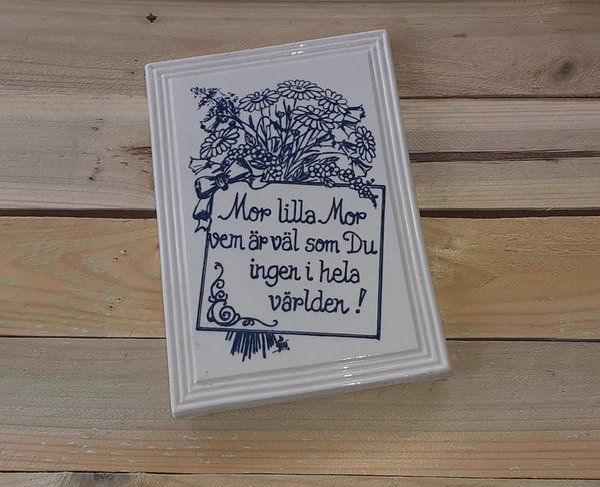 Mor lilla Mor
vem är väl som Du
ingen i hela
världen!